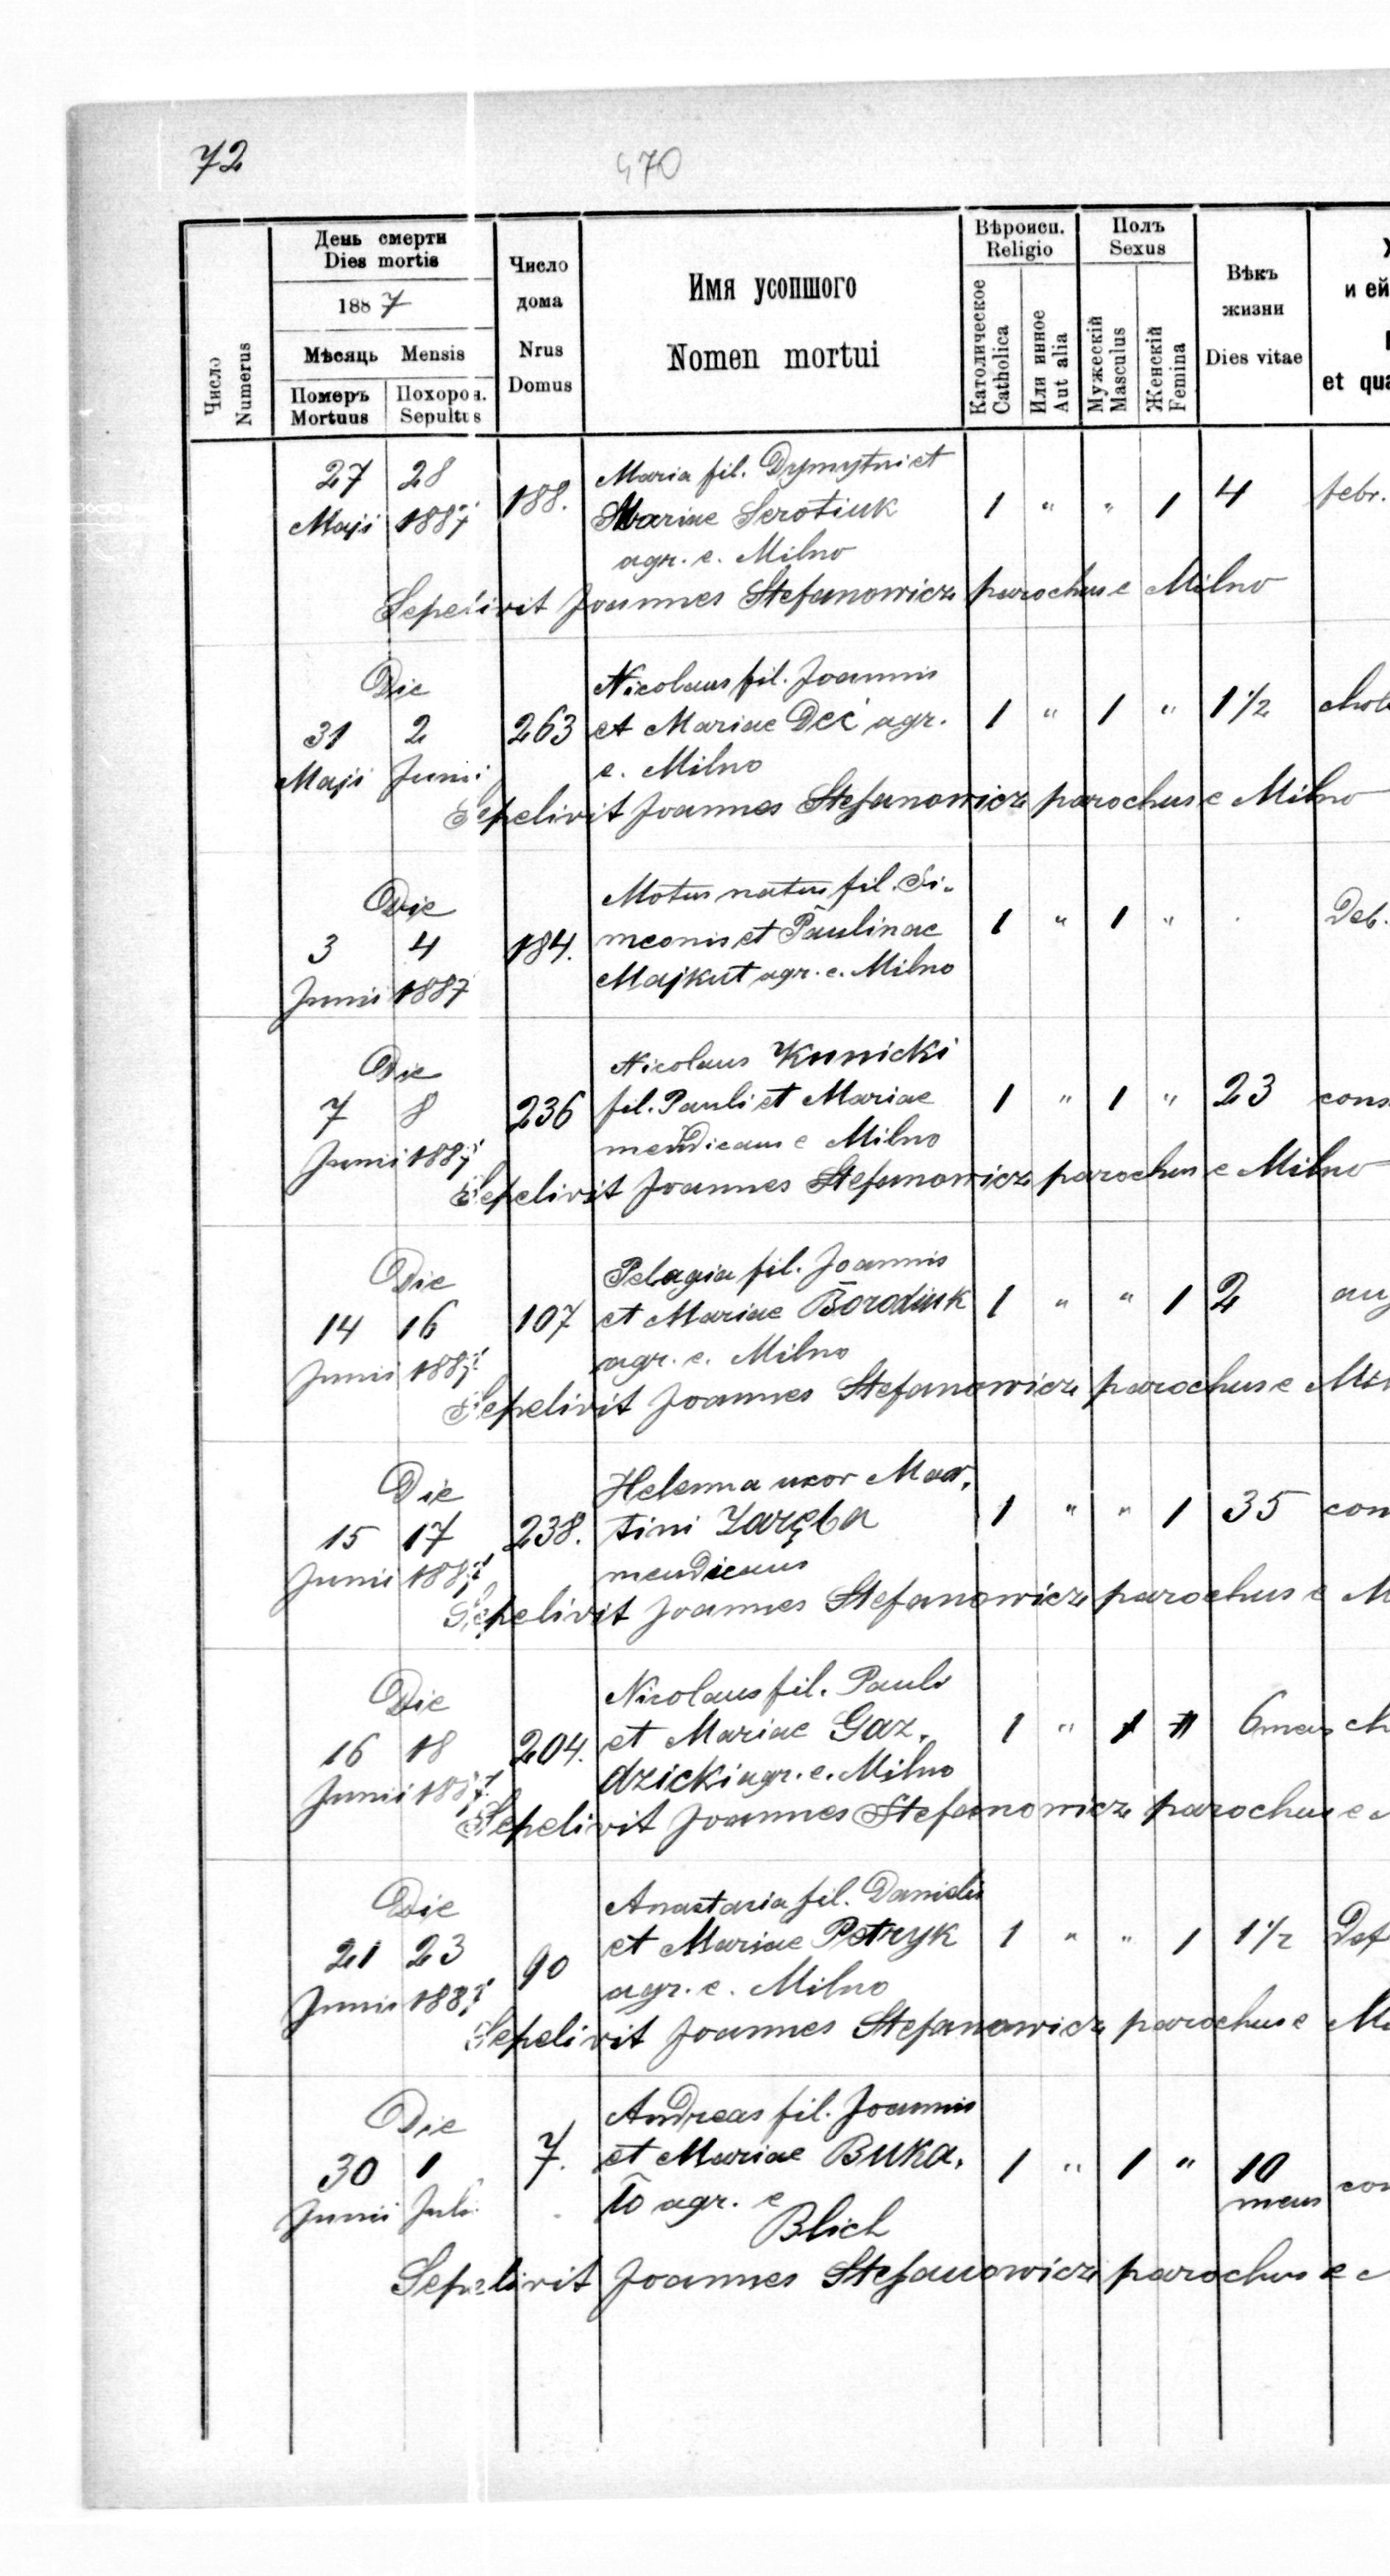 72
470
День смерти
Dies mortis
188 7
Мѣсяць Mensis
Померъ Похорон.
Mortuus Sepultus
Число
Numerus
Число
дома
Nrus
Domus
Имя усопшого
Nomen mortui
Вѣроисп.
Religio
Католическое
Catholica
Или инное
Aut alia
Полъ
Sexus
Мужескій
Masculus
Женскій
Femina
Вѣкъ
жизни
Dies vitae
и ей
et qua
27 28 188. Maria fil. Dymytri et 1 " " 1 4 febr.
Maji 1887 Mariae Serotiuk
agr. e. Milno
Sepelivit Joannes Stefanowicz parochus e Milno
Die Nicolaus fil. Joannis
31 2 263 et Mariae Deć agr. 1 " 1 " 1 1/2
Maji Junii e. Milno
Sepelivit Joannes Stefanowicz parochus e Milno
Die Motus natus fil. Si-
3 4 184. meonis et Paulinae 1 " 1 " Deb.
Junii 1887 Majkut agr. e. Milno
Die Nicolaus Kunicki
7 8 236 fil. Pauli et Mariae 1 " 1 " 23 cons
Junii 1887 mendicans e Milno
Sepelivit Joannes Stefanowicz parochus e Milno
Die Pelagia fil. Joannis
14 16 107 et Mariae Borodiuk 1 " " 1 2 ang
Junii 1887 agr. e. Milno
Sepelivit Joannes Stefanowicz parochus e Mil
Die Helenna uxor Mar-
15 17 238. tini Zaręba 1 " " 1 35 con
Junii 1887 mendicans
Sepelivit Joannes Stefanowicz parochus e M
Die Nicolaus fil. Pauli
16 18 204. et Mariae Gaz- 1 " 1 6 mens ch
Junii 1887 dzicki agr. e. Milno
Sepelivit Joannes Stefanowicz parochus e
Die Anastasia fil. Danielis
21 23 90 et Mariae Petryk 1 " " 1 1 1/2 Def
Junii 1887 agr. e. Milno
Sepelivit Joannes Stefanowicz parochus e Mi
Die Andreas fil. Joannis
30 1 7. et Mariae Buka- 1 " 1 " 10 con
Junii Juli to agr. e mens
Blich
Sepelivit Joannes Stefanowicz parochus e